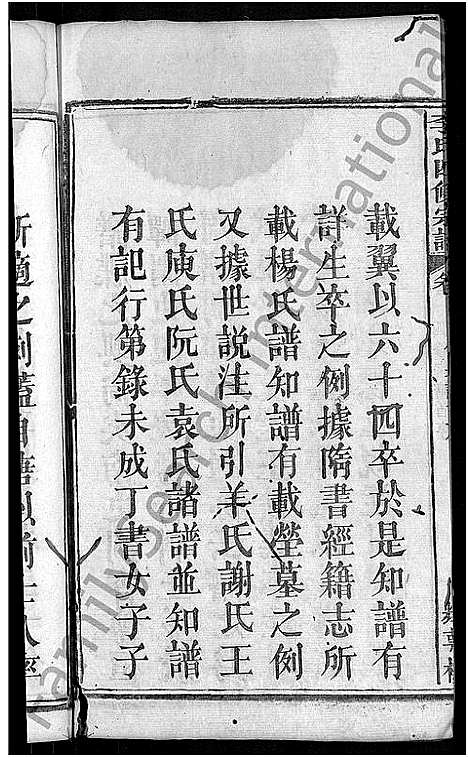 李氏四修宗譜
載翼以六十四卒於是知譜有
詳生卒之例據隋書經籍志所
載楊氏譜知譜有載塋墓之例
又據世說注所引羊氏謝氏王
氏庾氏阮氏袁氏諸譜並知譜
有記行第錄未成丁書女子子
所適之例蓋自唐以前
FamilySearch International